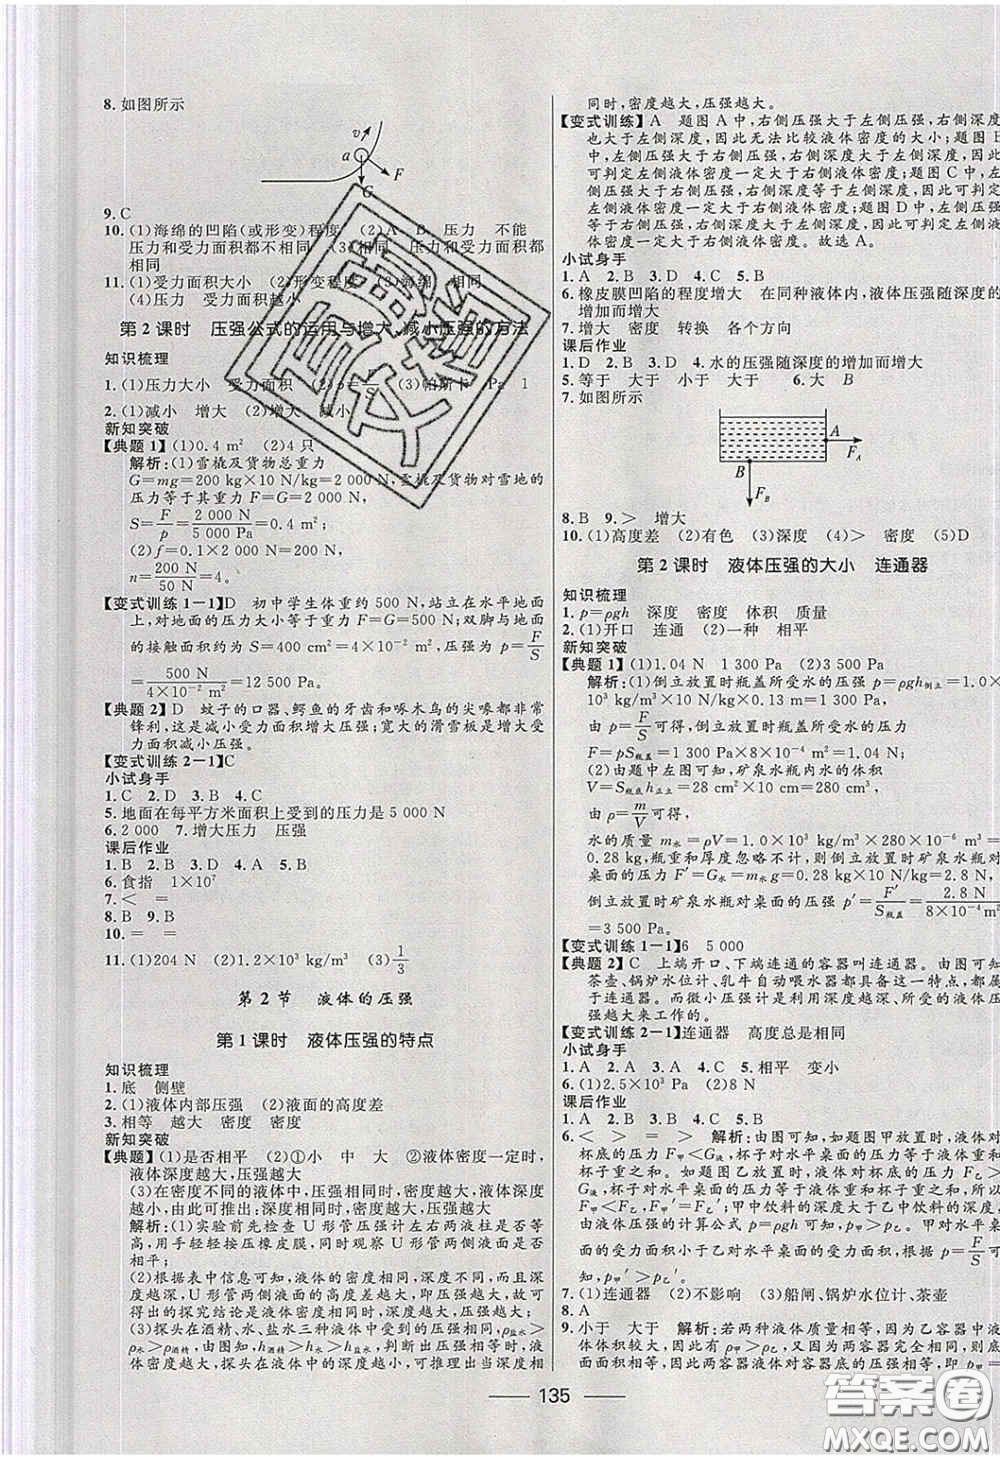 8. 如图所示
v
a
F
G
9. C
10. (1)海绵的凹陷(或形变)程度 (2)A、B 压力 不能
压力和受力面积都不相同 (3)相同 压力和受力面积都
相同
11. (1)受力面积大小 (2)形变程度 (3)海绵 相同
(4)压力 受力面积越小
第2课时 压强公式的运用与增大、减小压强的方法
知识梳理
1. (1)压力大小 受力面积 (2)p=F/S (3)帕斯卡 Pa 1
2. (1)减小 增大 (2)增大 减小
新知突破
【典题1】(1)0.4 m² (2)4 只
解析:(1)雪橇及货物总重力
G=mg=200 kg×10 N/kg=2 000 N,雪橇及货物对雪地的
压力等于其重力 F=G=2 000 N,
S=F/p=2 000 N/5 000 Pa=0.4 m²;
(2)f=0.1×G=0.1×2 000 N=200 N,
n=200 N/50 N=4。
【变式训练1-1】D 初中学生体重约 500 N,站立在水平地面
上,对地面的压力大小等于重力 F=G=500 N;双脚与地面
的接触面积约为 S=400 cm²=4×10⁻² m²,压强为 p=F/S
=500 N/4×10⁻² m²=12 500 Pa。
【典题2】D 蚊子的口器、鳄鱼的牙齿和啄木鸟的尖喙都非常
锋利,这是减小受力面积增大压强;宽大的滑雪板是增大受
力面积减小压强。
【变式训练2-1】C
小试身手
1. C 2. D 3. B 4. C
5. 地面在每平方米面积上受到的压力是 5 000 N
6. 2 000 7. 增大压力 压强
课后作业
1. B 2. B 3. D 4. A 5. B
6. 食指 1×10⁷
7. < =
8. B 9. B
10. = =
11. (1)204 N (2)1.2×10³ kg/m³ (3)1/3
第2节 液体的压强
第1课时 液体压强的特点
知识梳理
1. 底 侧壁
2. (1)液体内部压强 (2)液面的高度差
3. 相等 越大 密度 密度
新知突破
【典题】(1)是否相平 (2)①小 中 大 ②液体密度一定时,
液体深度越大,压强越大
(3)在密度不同的液体中,压强相同时,密度越大的深度
越小,由此可推出:深度相同时,密度越大,压强越大
解析:(1)实验前先检查 U 形管压强计左右两液柱是否等
高,用手轻轻按压橡皮膜,同时观察 U 形管两侧液面是否
相平;
(2)根据表中信息可知,液体的密度相同,深度不同,而且
深度越深,U 形管两侧液面的高度差越大,即压强越大,故可
得出的探究结论是液体密度一定时,液体深度越大,压强越大;
(3)探头在酒精、水、盐水三种液体中的压强相同,ρ盐水>
ρ水>ρ酒精,由图知,h酒精>h水>h盐水,判断出压强相同时,
液体密度越大,探头所处深度越小,可推理出当深度相
同时,密度越大,压强越大。
【变式训练】A 题图 A 中,右侧压强大于左侧压强,右侧深度
也大于左侧深度,因此无法比较液体密度的大小;题图 B
中,左侧压强大于右侧压强,右侧深度大于左侧深度,因此
可判定左侧液体密度一定大于右侧液体密度;题图 C 中,左
侧压强大于右侧压强,右侧深度等于左侧深度,因此可判定
左侧液体密度一定大于右侧液体密度;题图 D 中,右侧压强
大于左侧压强,右侧深度小于左侧深度,因此可判定右侧液
体密度一定大于左侧液体密度。故选 A。
小试身手
1. A 2. B 3. D 4. C 5. B
6. 橡皮膜凹陷的程度增大 在同种液体内,液体压强随深度的
增加而增大
7. 增大 密度 转换 各个方向
课后作业
1. D 2. B 3. D 4. 水的压强随深度的增加而增大
5. 等于 大于 小于 大于 6. 大 B
7. 如图所示
A
F_A
B
F_B
8. B 9. > 增大
10. (1)高度差 (2)有色 (3)深度 (4)> 密度 (5)D
第2课时 液体压强的大小 连通器
知识梳理
1. p=ρgh 深度 密度 体积 质量
2. (1)开口 连通 (2)一种 相平
新知突破
【典题1】(1)1.04 N 1 300 Pa (2)3 500 Pa
解析:(1)倒立放置时瓶盖所受水的压强 p=ρgh倒立=1.0×
10³ kg/m³×10 N/kg×0.13 m=1 300 Pa,
由 p=F/S可得,倒立放置时瓶盖所受水的压力
F=pS瓶盖=1 300 Pa×8×10⁻⁴ m²=1.04 N;
(2)由题中左图可知,矿泉水瓶内水的体积
V=S瓶底h正立=28 cm²×10 cm=280 cm³,
由 ρ=m/V可得,
水的质量 m水=ρV=1.0×10³ kg/m³×280×10⁻⁶ m³=
0.28 kg,瓶重和厚度忽略不计,则倒立放置时矿泉水瓶对
桌面的压力 F′=G水=m水g=0.28 kg×10 N/kg=2.8 N,
倒立放置时矿泉水瓶对桌面的压强 p′=F′/S瓶盖=2.8 N/8×10⁻⁴ m²
=3 500 Pa。
【变式训练1-1】6 5 000
【典题2】C 上端开口、下端连通的容器叫连通器。由图可知
茶壶、锅炉水位计、乳牛自动喂水器都具备这一特点,都
属于连通器。而微小压强计是利用深度越深、所受的液体压
强越大来工作的。
【变式训练2-1】连通器 高度总是相同
小试身手
1. A 2. A 3. C 4. B 5. 相平 变小
6. (1)2.5×10³ Pa (2)8 N
课后作业
1. A 2. B 3. A 4. C 5. B
6. < > = > 解析:由图可知,如题图甲放置时,液体对
杯底的压力 F甲<G液,杯子对水平桌面的压力等于液体重和
杯子重之和。如题图乙放置时,液体对杯底的压力 F乙>
G液,杯子对水平桌面的压力等于液体重和杯子重之和,所以
F甲<F乙,F甲′=F乙′;甲中饮料的深度大于乙中饮料的深度,
由液体压强的计算公式 p=ρgh 可知,p甲>p乙。甲对水平桌
面的受力面积小于乙对水平桌面的受力面积,由 p=F/S可
知,p甲′>p乙′。
7. (1)连通器 (2)不影响 (3)船闸、锅炉水位计、茶壶
8. A
9. 小于 大于 解析:若两种液体质量相等,因为乙容器中液
体体积较大,因此 ρ甲>ρ乙,又因为两容器液面相平、
面面积相等,因此两容器液体对容器底的压强
135
答案圈
MXQE.COM